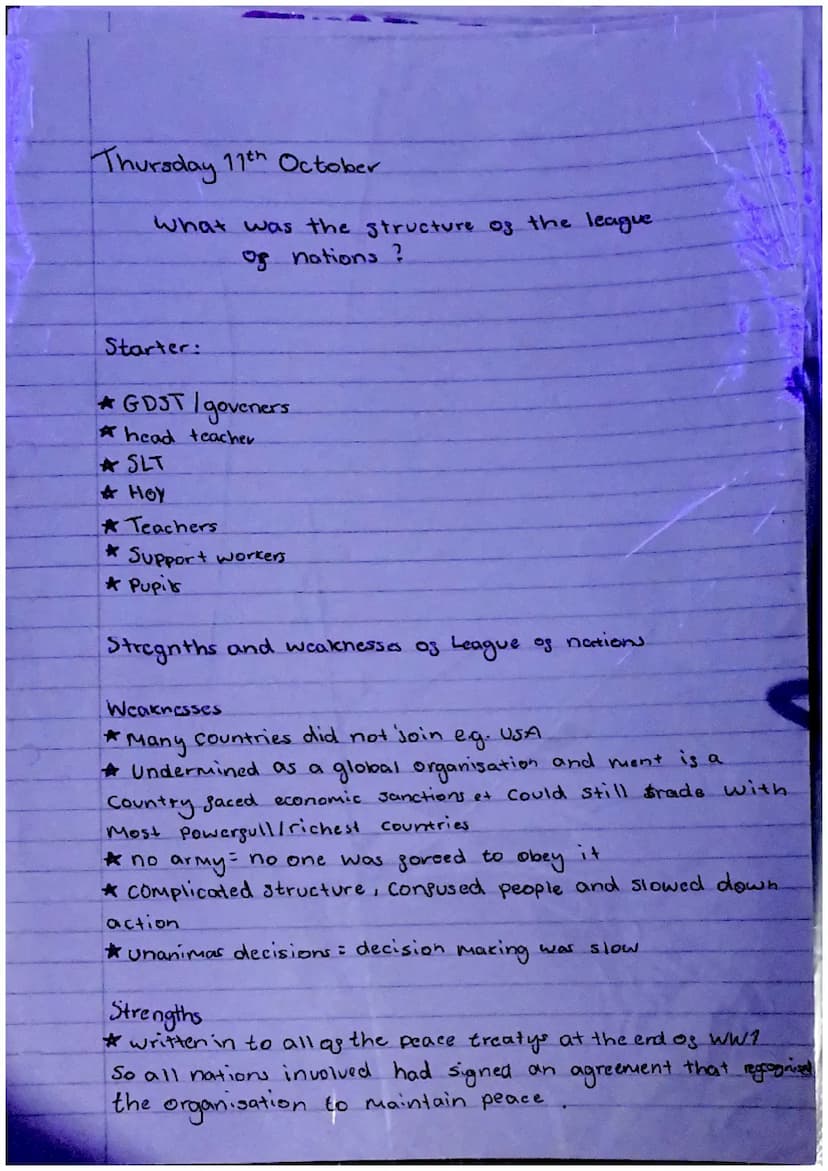 Thursday 11th October
What was the structure of the league
of nations ?
Starter:
★ GDST / goveners
★ head teacher
★ SLT
★ HOY
★ Teachers
★ Support workers
★ Pupils
Stregnths and weaknesses of League of nations
Weaknesses
★ Many countries did not join e.g. USA
★ Undermined as a global organisation and ment if a
Country faced economic sanctions it could still trade with
Most powerfull/richest countries
★ no army = no one was forced to obey it
★ complicated structure, confused people and slowed down
action
★ unanimas decisions = decision making was slow
Strengths
★ written in to all of the peace treatys at the end of WW1
So all nations involved had signed an agreement that recognised
the organisation to maintain peace .